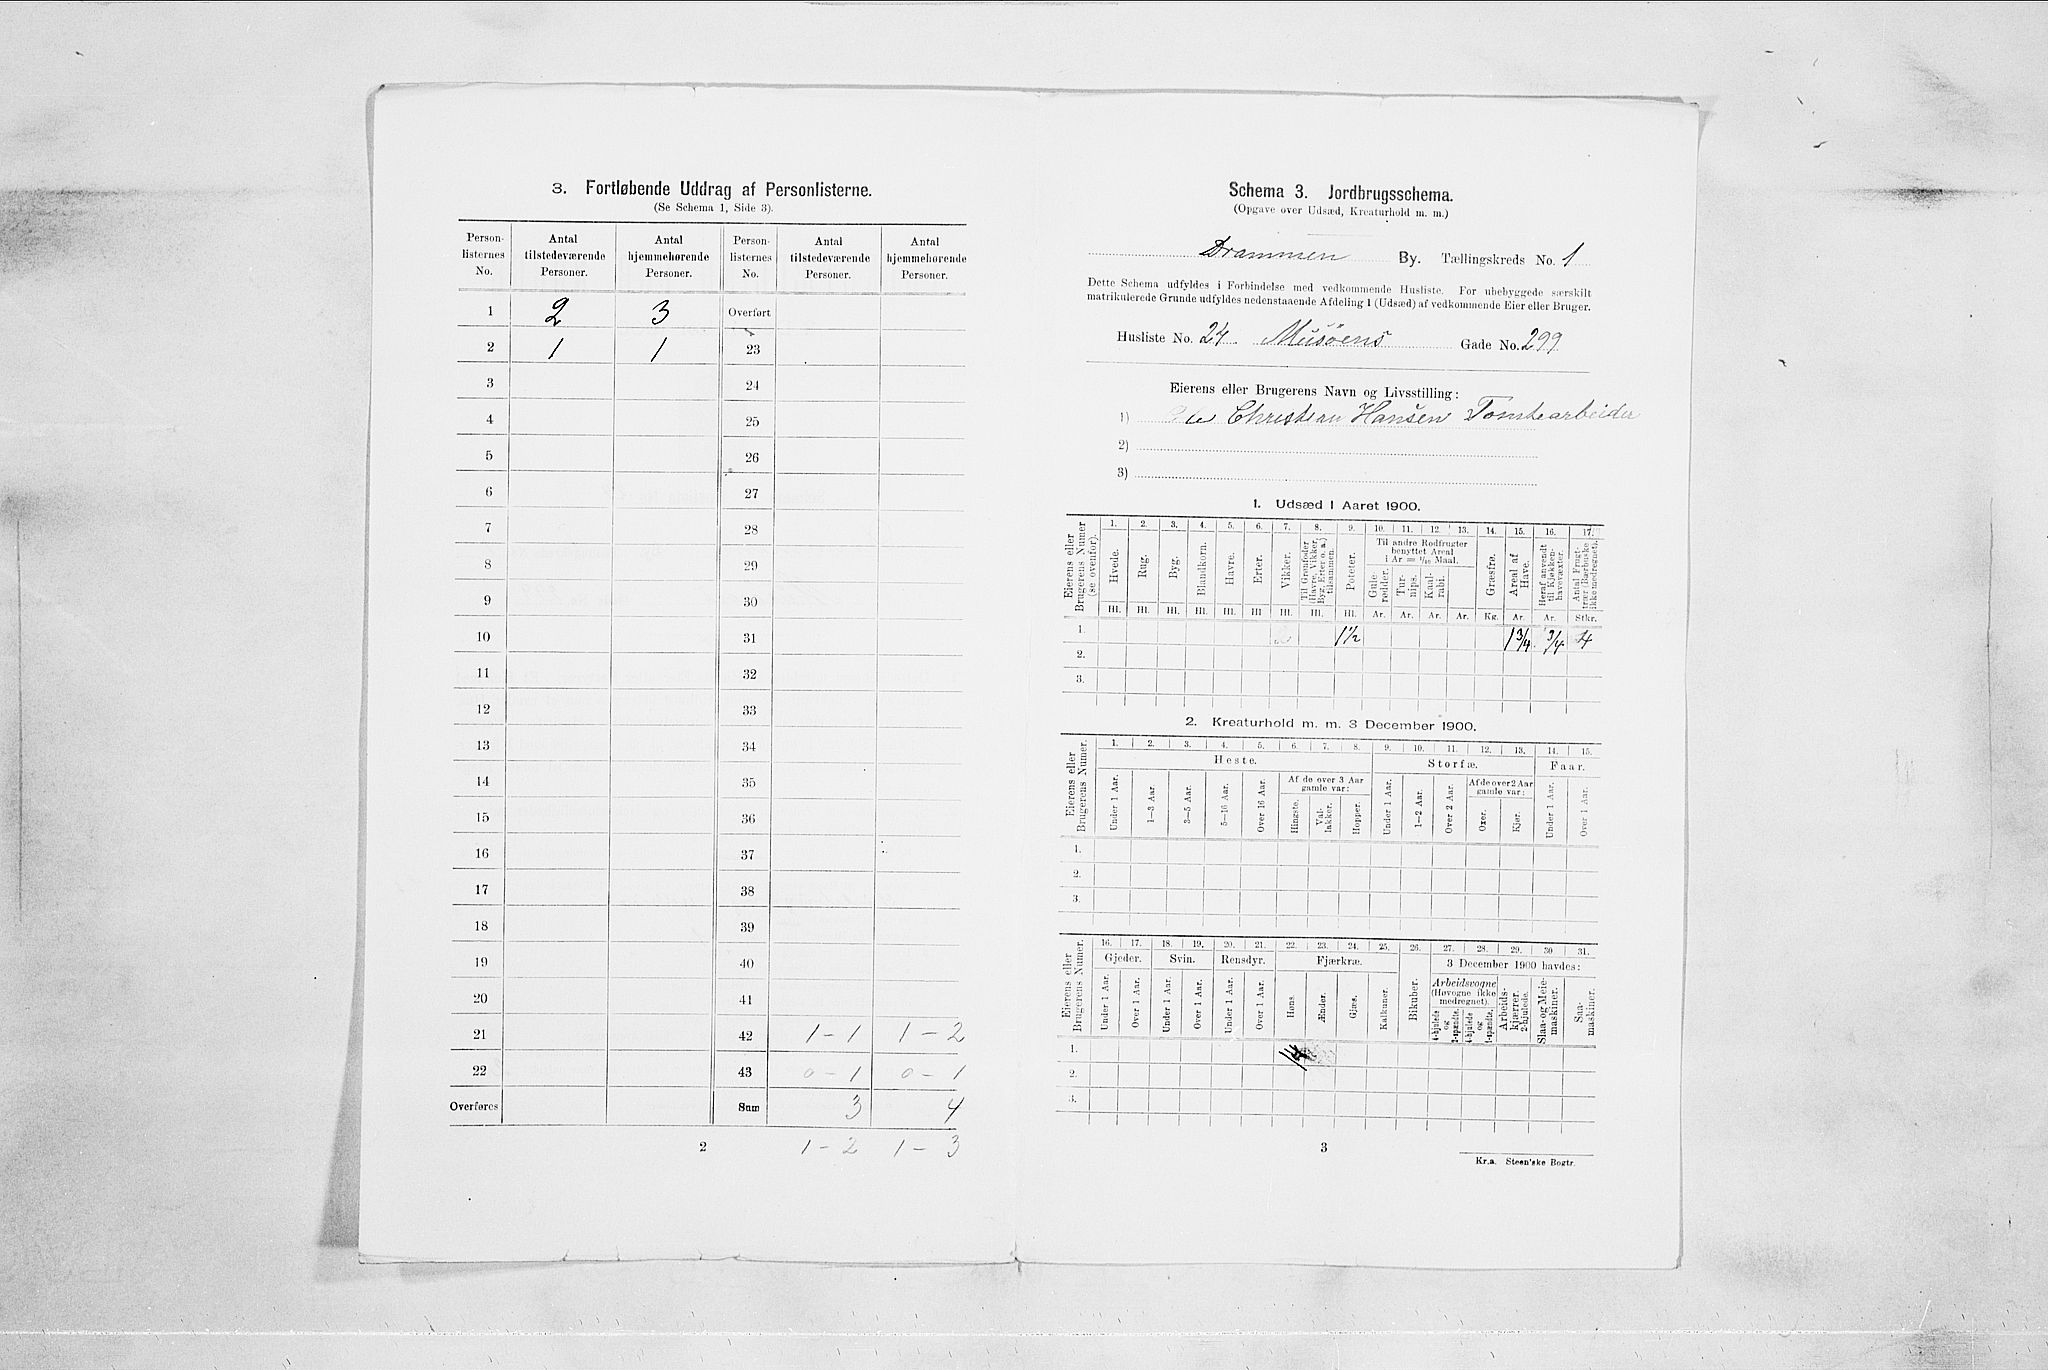 3. Fortløbende Uddrag af Personlisterne.
(Se Schema 1, Side 3).
Person-listernes No. | Antal tilstedeværende Personer. | Antal hjemmehørende Personer. | Person-listernes No. | Antal tilstedeværende Personer. | Antal hjemmehørende Personer.
1 2 3 Overført
2 1 1 23
3 24
4 25
5 26
6 27
7 28
8 29
9 30
10 31
11 32
12 33
13 34
14 35
15 36
16 37
17 38
18 39
19 40
20 41
21 42 1-1 1-2
22 43 0-1 0-1
Overføres Sum 3 4
1-2 1-3
2
Schema 3. Jordbrugsschema.
(Opgave over Udsæd, Kreaturhold m. m.)
Drammen By. Tællingskreds No. 1
Dette Schema udfyldes i Forbindelse med vedkommende Husliste. For ubebyggede særskilt
matrikulerede Grunde udfyldes nedenstaaende Afdeling 1 (Udsæd) af vedkommende Eier eller Bruger.
Husliste No. 24 Musöens Gade No. 299
Eierens eller Brugerens Navn og Livsstilling:
1) Christian Hansen Tomtearbeider
2)
3)
1. Udsæd i Aaret 1900.
Eierens eller Brugerens Numer (se ovenfor).
1. 2. 3. 4. 5. 6. 7. 8. 9. 10. 11. 12. 13. 14. 15. 16. 17.
Hvede. Rug. Byg. Blandkorn. Havre. Erter. Vikker. Til Grønfoder (Havre, Vikker, Byg, Erter o. a.) tilsammen. Poteter. Til andre Rodfrugter benyttet Areal i Ar = 1/10 Maal. Gulerødder. Turnips. Kaalrabi. Græsfrø. Areal af Have. Heraf anvendt til Kjøkkenhavevæxter. Antal Frugttrær (Bærbuske ikke medregnet).
Hl. Hl. Hl. Hl. Hl. Hl. Hl. Hl. Hl. Ar. Ar. Ar. Ar. Kg. Ar. Ar. Stkr.
1. 1½ 1¾ ¾ 4
2.
3.
2. Kreaturhold m. m. 3 December 1900.
Eierens eller Brugerens Numer.
1. 2. 3. 4. 5. 6. 7. 8. 9. 10. 11. 12. 13. 14. 15.
Heste. Storfæ. Faar.
Under 1 Aar. 1—3 Aar. 3—5 Aar. 5—16 Aar. Over 16 Aar. Af de over 3 Aar gamle var: Hingste. Vallakker. Hopper. Under 1 Aar. 1—2 Aar. Over 2 Aar. Af de over 2 Aar gamle var: Oxer. Kjør. Under 1 Aar. Over 1 Aar.
1.
2.
3.
Eierens eller Brugerens Numer.
16. 17. 18. 19. 20. 21. 22. 23. 24. 25. 26. 27. 28. 29. 30 31.
Gjeder. Svin. Rensdyr. Fjærkræ. Bikuber. 3 December 1900 havdes:
Under 1 Aar. Over 1 Aar. Under 1 Aar. Over 1 Aar. Under 1 Aar. Over 1 Aar. Høns. Ænder. Gjæs. Kalkuner. Arbeidsvogne (Høvogne ikke medregnet). 4-hjulede og 2-spændte. 4-hjulede og 1-spændte. Arbeidskjærrer. 2-hjulede. Slaa- og Meiemaskiner. Saamaskiner.
1.
2.
3.
3
Kr.a. Steen'ske Bogtr.